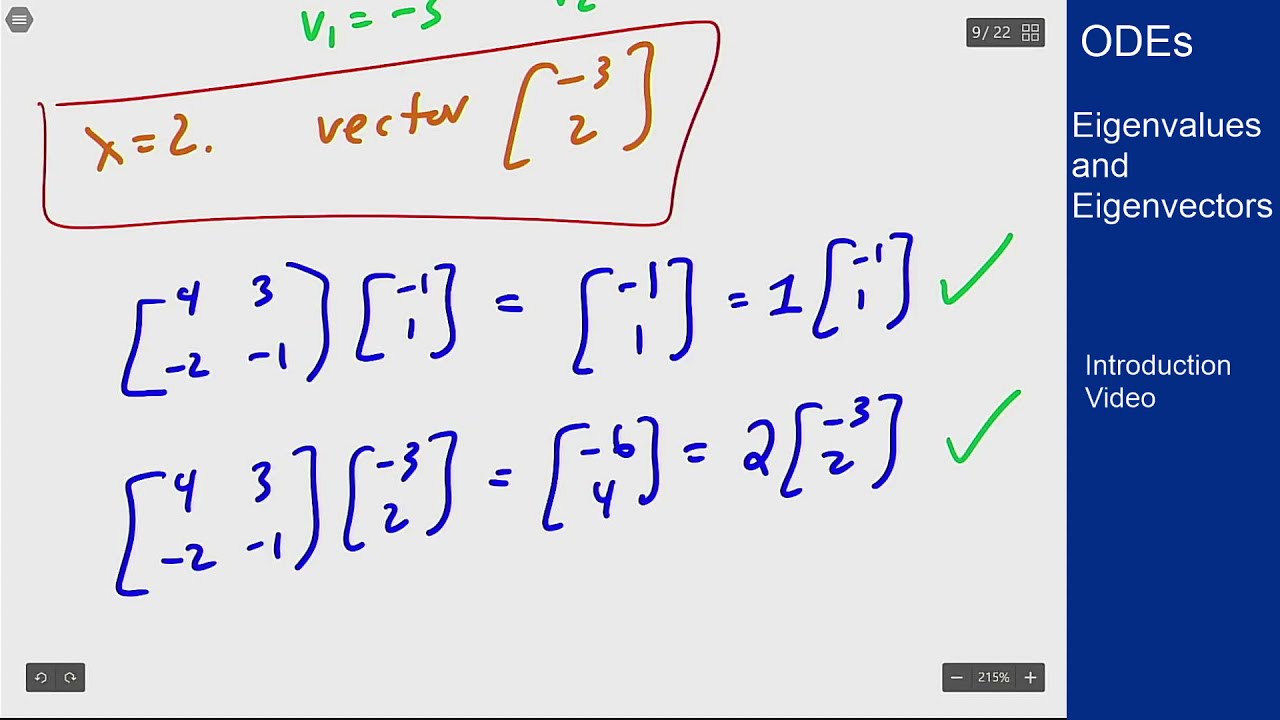 v₁ = -3 v₂
9 / 22
λ = 2. vector [-3 2]
[4 3 -2 -1] [-1 1] = [-1 1] = 1 [-1 1] ✓
[4 3 -2 -1] [-3 2] = [-6 4] = 2 [-3 2] ✓
215%
ODEs
Eigenvalues
and
Eigenvectors
Introduction
Video